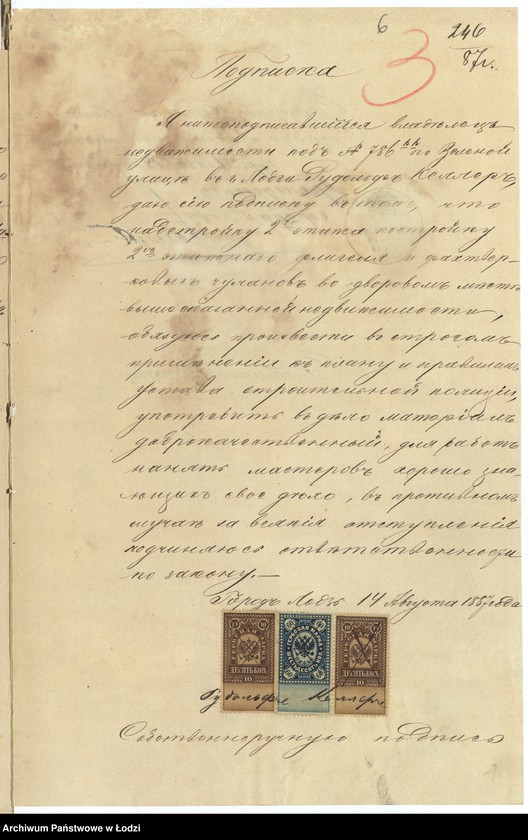 6
246
87г.
3
Подписка
Я нижеподписавшійся владѣлецъ
недвижимости подъ № 786 по Зеленой
улицѣ въ г. Лодзи Рудольфъ Келлеръ,
даю сію подписку въ томъ, что
надстройку 2го этажа постройку
2хъ этажнаго флигеля и фахтвер-
ковыхъ чулановъ во дворовомъ мѣстѣ
вышесказанной недвижимости,
обязуюсь произвести въ строгомъ
примѣненіи къ плану и правиламъ
устава строительной полиціи,
употребить въ дѣло матеріалъ
доброкачественный, для работъ
нанять мастеровъ хорошо зна-
ющихъ свое дѣло, въ противномъ
случаѣ за всякія отступленія
подчиняюсь отвѣтственности
по закону.—
Городъ Лодзь 14 Августа 1887 года
ДЕСЯТЬ КОП.
10
60
60
ДЕСЯТЬ КОП.
10
Рудольфъ Келлеръ
Собственноручную подпись
Archiwum Państwowe w Łodzi
Archiwum Państwowe w Łodzi